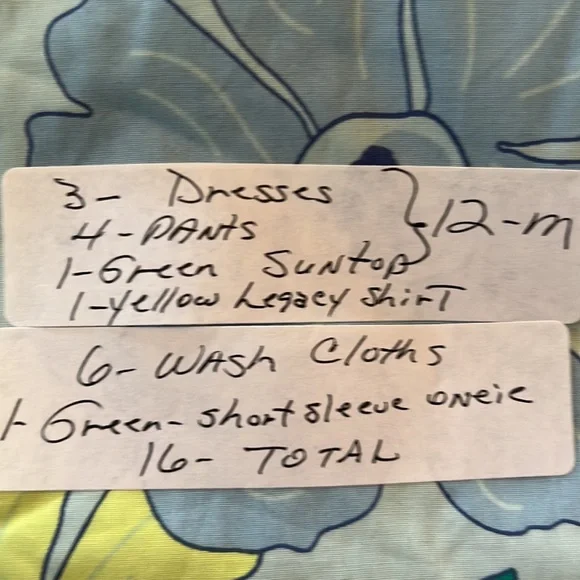 3- Dresses
4-PANTS
1-Green Suntop
12-m
1-yellow Legacy shirT
6- WASh Cloths
1- Green-short sleeve oneie
16- TOTAL